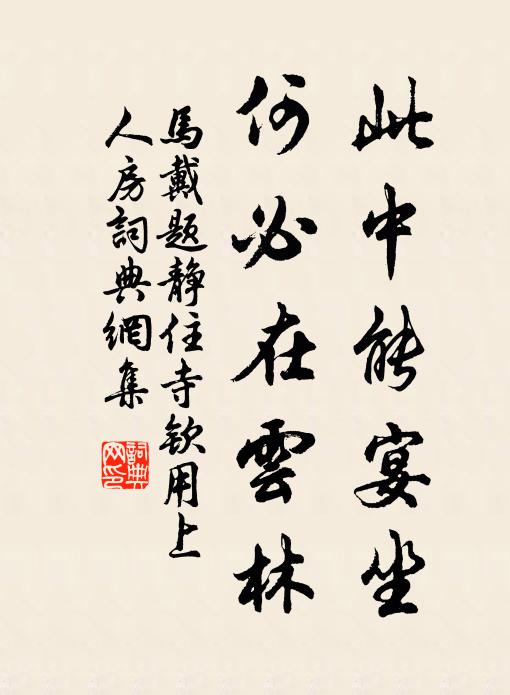 此中能宴坐
何必在雲林
馬戴題靜住寺欽用上
人房詞典網集
詞典網印